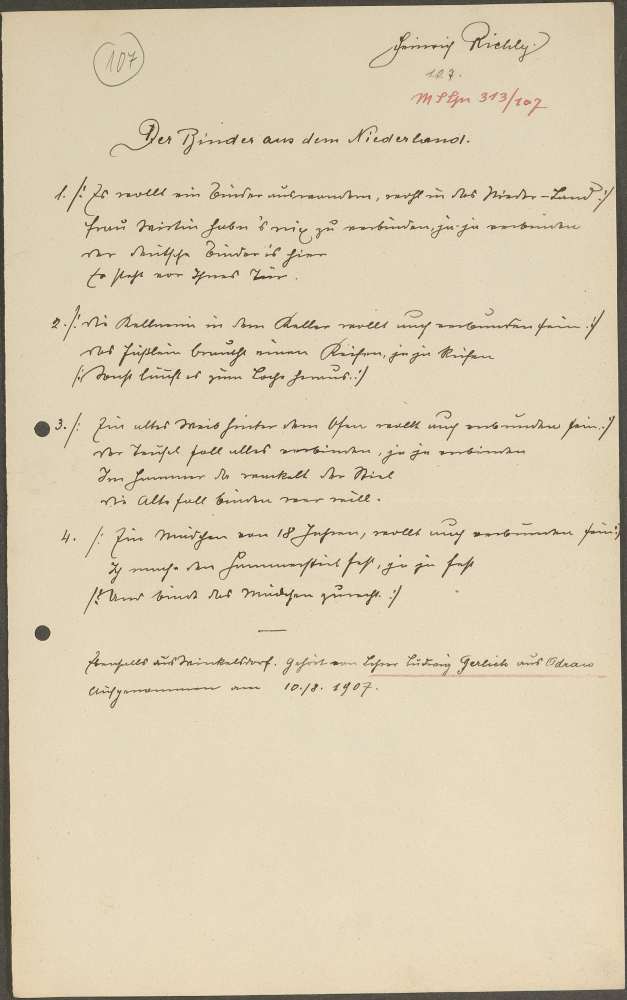 107
Heinrich Richly.
107.
MSLgn 313/107
Der Binder aus dem Niederland.
1. /: Es wollt ein Binder auswandern, wohl in das Nieder-Land :/
Frau Wirtin habn's nix zu verbinden, ja ja verbinden
der deutsche Binder is hier
Er steht vor Ihrer Tür.
2. /: die Kellnerin in dem Keller wollt auch verbunden sein :/
das Fäßlein braucht einen Reifen, ja ja Reifen
/: Sonst läuft es zum Loche heraus. :/
3. /: Ein altes Weib hinter dem Ofen wollt auch verbunden sein. :/
der Teufel soll alles verbinden, ja ja verbinden
Im Hammer da wackelt der Stiel
die Alte soll binden wer will.
4. /: Ein Mädchen von 18 Jahren, wollt auch verbunden sein :/
Ich mache den Hammerstiel fest, ja ja fest
/: Und bind das Mädchen zurecht. :/
Ebenfalls aus Winkelsdorf. Gehört von Lehrer Ludwig Gerlich aus Odrau
Aufgenommen am 10./8. 1907.